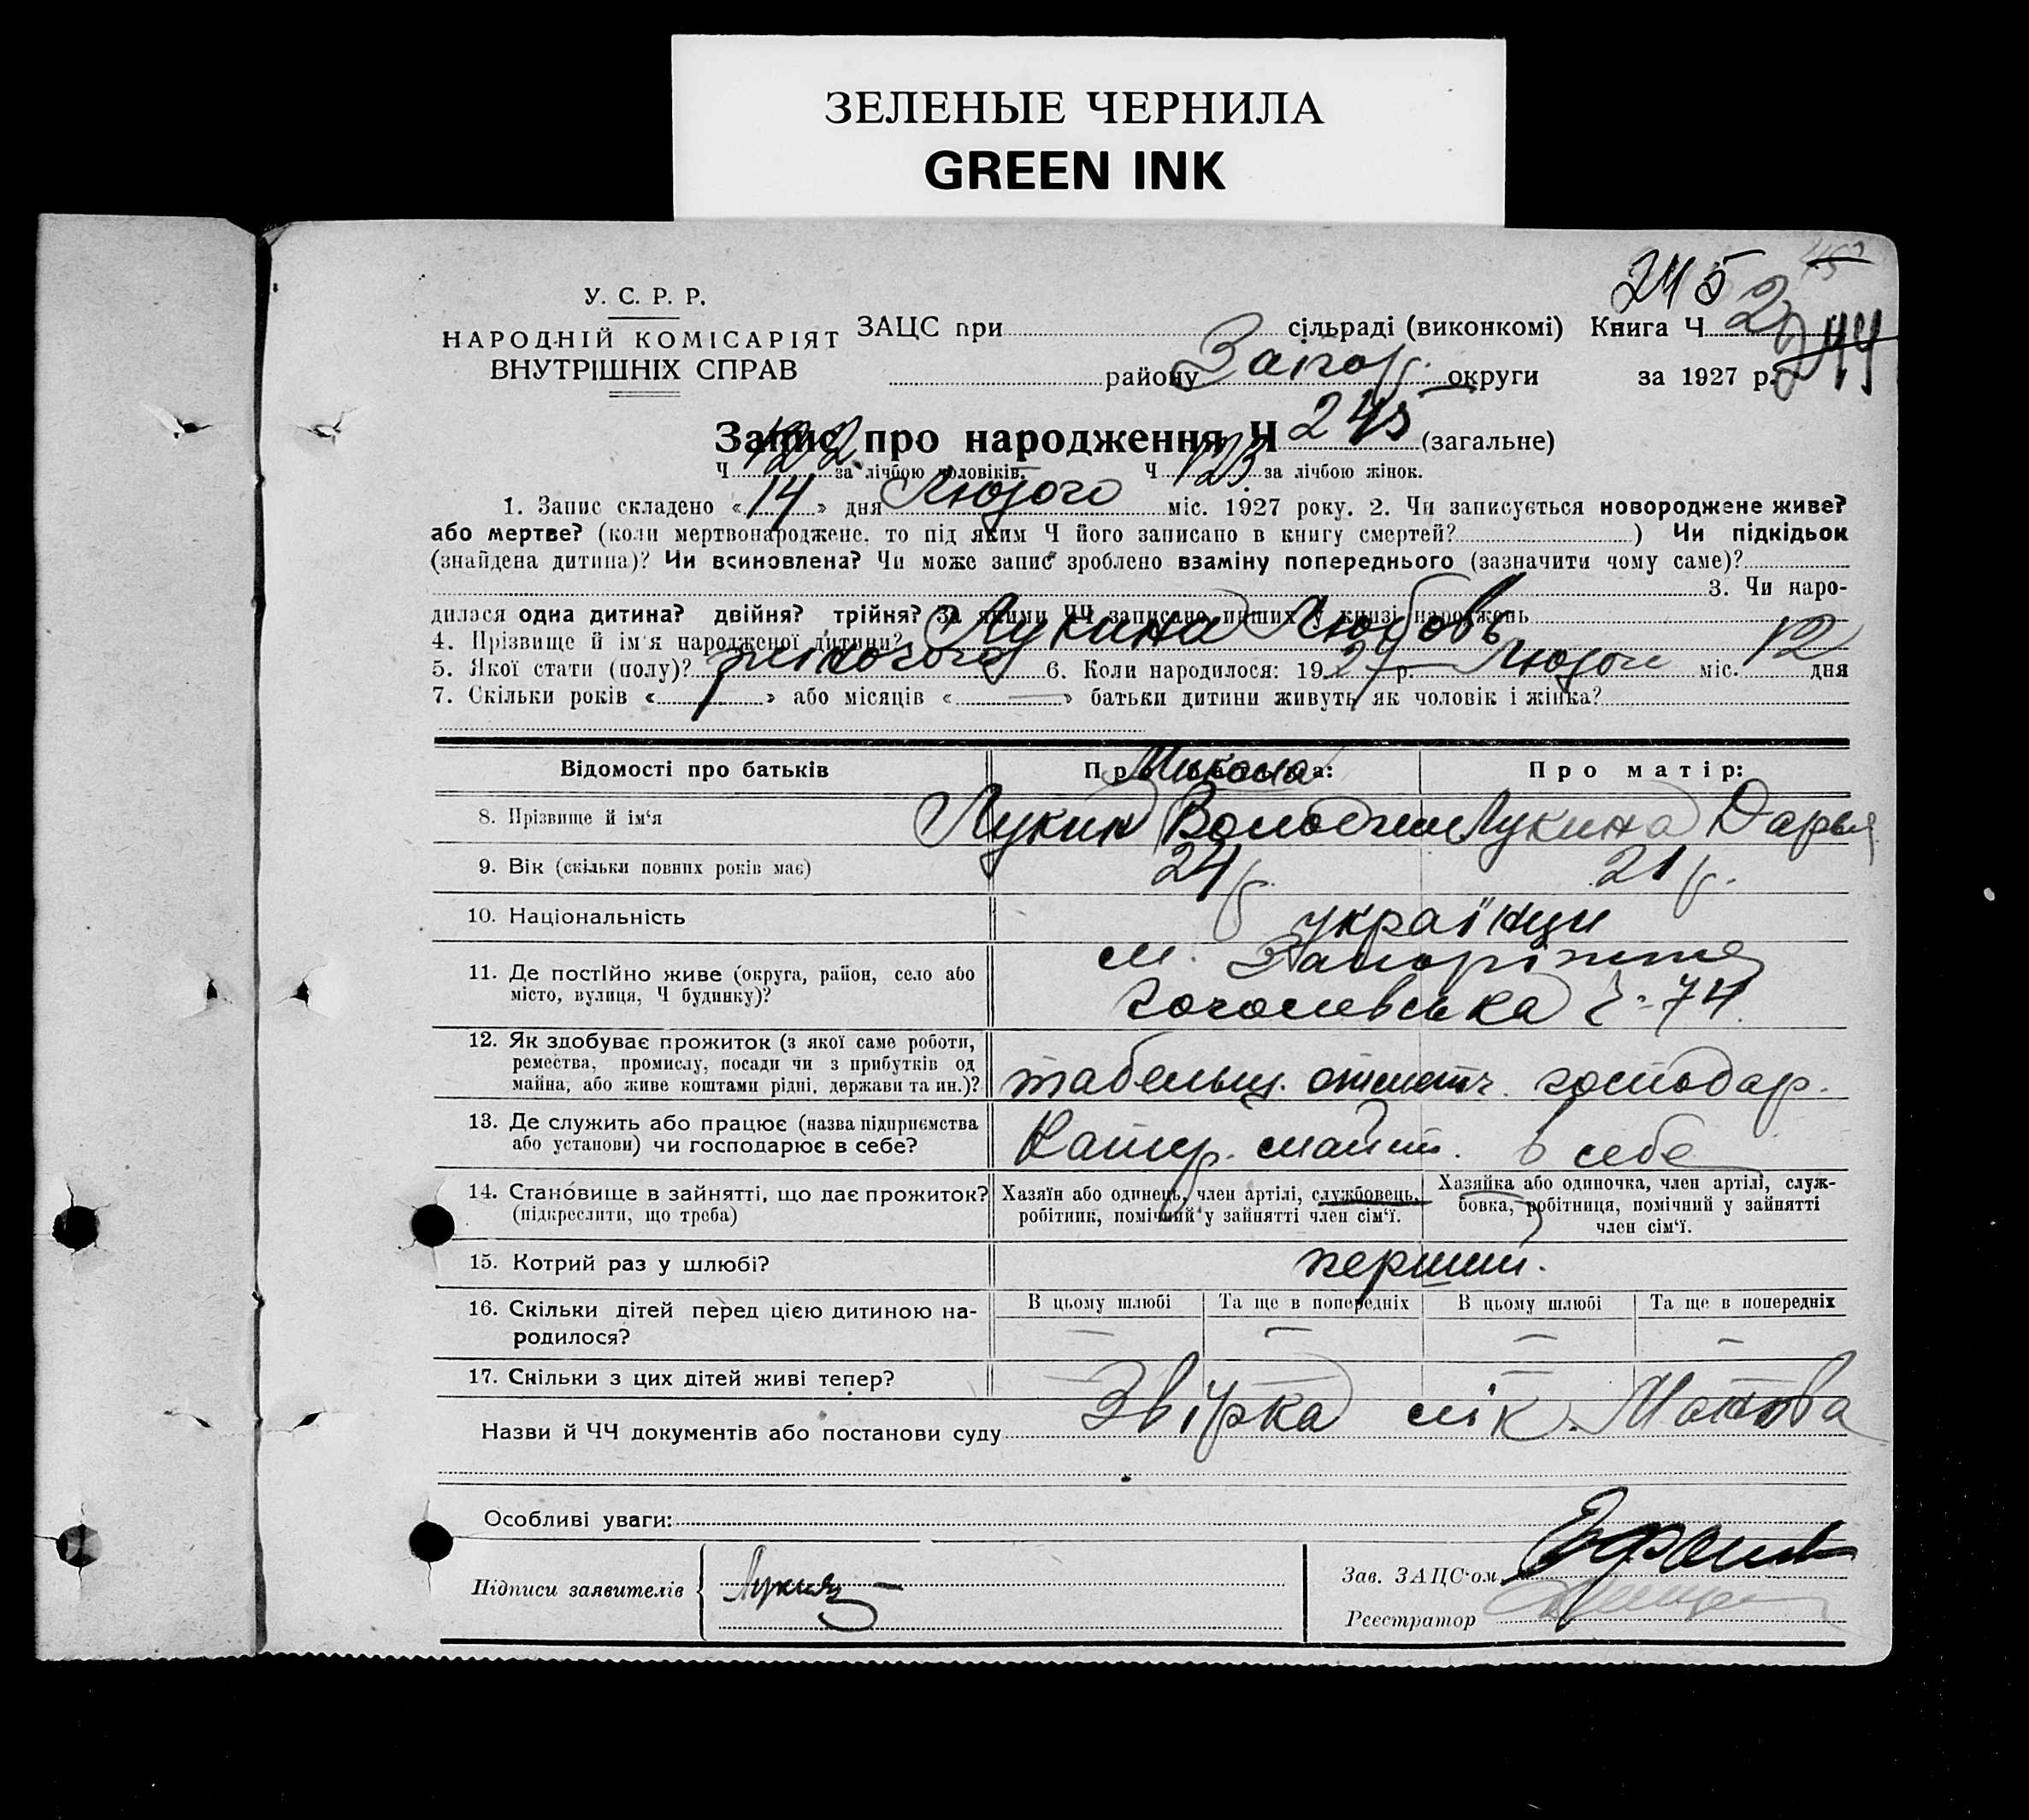 ЗЕЛЕНЫЕ ЧЕРНИЛА
GREEN INK
245
У. С. Р. Р.
НАРОДНІЙ КОМІСАРІЯТ
ВНУТРІШНІХ СПРАВ
ЗАЦС при сільраді (виконкомі) Книга Ч 2
району Запор. округи за 1927 р. 244
Запис про народження Ч 245 (загальне)
Ч 122 за лічбою чоловіків. Ч 123 за лічбою жінок.
1. Запис складено « 14 » дня Лютого міс. 1927 року. 2. Чи записується новороджене живе?
або мертве? (коли мертвонароджене, то під яким Ч його записано в книгу смертей? ) Чи підкідьок
(знайдена дитина)? Чи всиновлена? Чи може запис зроблено взаміну попереднього (зазначити чому саме)?
3. Чи наро-
дилася одна дитина? двійня? трійня? За якими ЧЧ записано инших у книзі народжень
4. Прізвище й ім'я народженої дитини? Лукина Любовь
5. Якої стати (полу)? жіночого 6. Коли народилося: 19 27 р. Лютого міс. 12 дня
7. Скільки років « » або місяців « — » батьки дитини живуть як чоловік і жінка?
Відомості про батьків Про батька: Про матір:
Микола
8. Прізвище й ім'я Лукин Володим Лукина Дарья
9. Вік (скільки повних років має) 24 р. 21 р.
10. Національність українци
11. Де постІйно живе (округа, район, село або м. Запоріжжя
місто, вулиця, Ч будинку)? Гоголевська ч. 74
12. Як здобуває прожиток (з якої саме роботи,
ремества, промислу, посади чи з прибутків од
майна, або живе коштами рідні, держави та ин.)? табельщ. отметч. господар.
13. Де служить або працює (назва підприємства
або установи) чи господарює в себе? Катер. майст. в себе
14. Становище в зайнятті, що дає прожиток? Хазяїн або одинець, член артілі, службовець, Хазяйка або одиночка, член артілі, служ-
(підкреслити, що треба) робітник, помічний у зайнятті член сім'ї. бовка, робітниця, помічний у зайнятті
член сім'ї.
15. Котрий раз у шлюбі? перший.
16. Скільки дітей перед цією дитиною на- В цьому шлюбі Та ще в попередніх В цьому шлюбі Та ще в попередніх
родилося? — — — —
17. Скільки з цих дітей живі тепер? — —
Назви й ЧЧ документів або постанови суду Звірка лік.
Особливі уваги:
Підписи заявителів Лукин
Зав. ЗАЦС-ом
Реєстратор